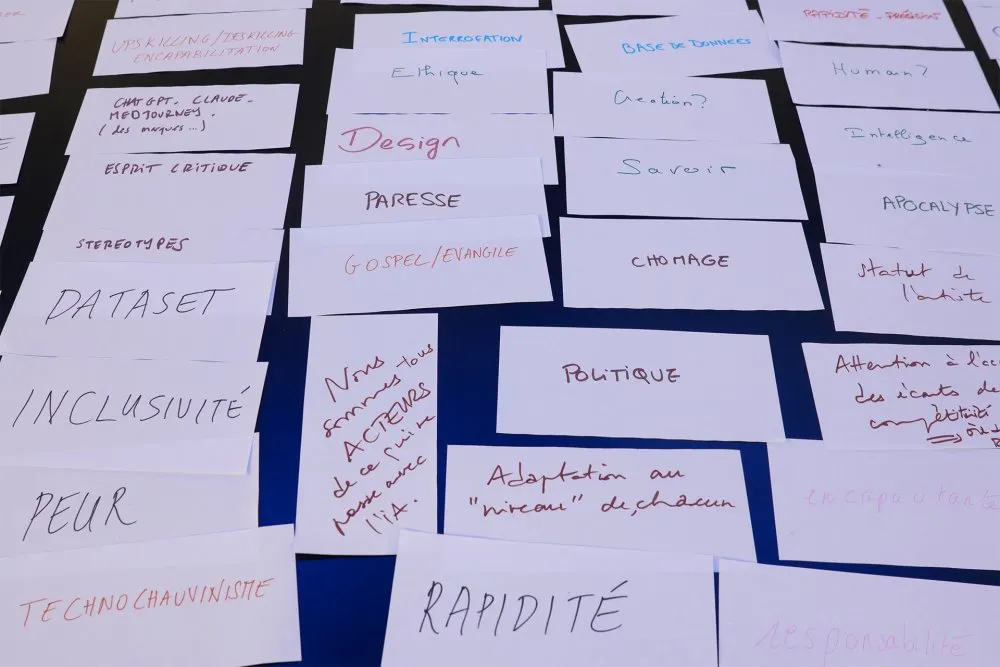 UPSKILLING/RESKILLING
ENCAPABILITATION
CHAT GPT. CLAUDE.
MEDJOURNEY.
(des marques...)
ESPRIT CRITIQUE
STEREOTYPES
DATASET
INCLUSIVITÉ
PEUR
TECHNOCHAUVINISME
INTERROGATION
Ethique
Design
PARESSE
GOSPEL/EVANGILE
Nous
sommes tous
ACTEURS
de ce qui se
passe avec
l'iA.
BASE DE DONNÉES
Creation?
Savoir
CHOMAGE
POLITIQUE
Adaptation au
"niveau" de chacun
RAPIDITÉ
RAPIDITÉ - PRÉCISION
Humain?
Intelligence
APOCALYPSE
statut de
l'artiste
Attention à
des écarts de
compétitivité
encapacitante
responsabilité